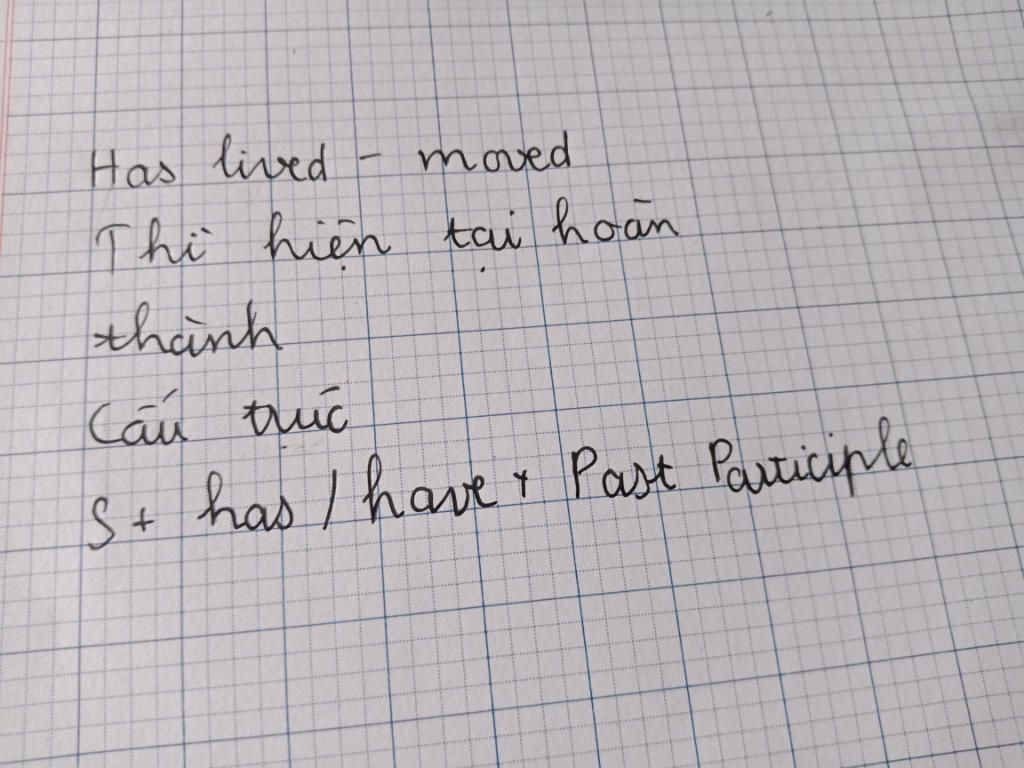 Has lived - moved
Thì hiện tại hoàn
thành
Cấu trúc
S + has / have + Past Participle